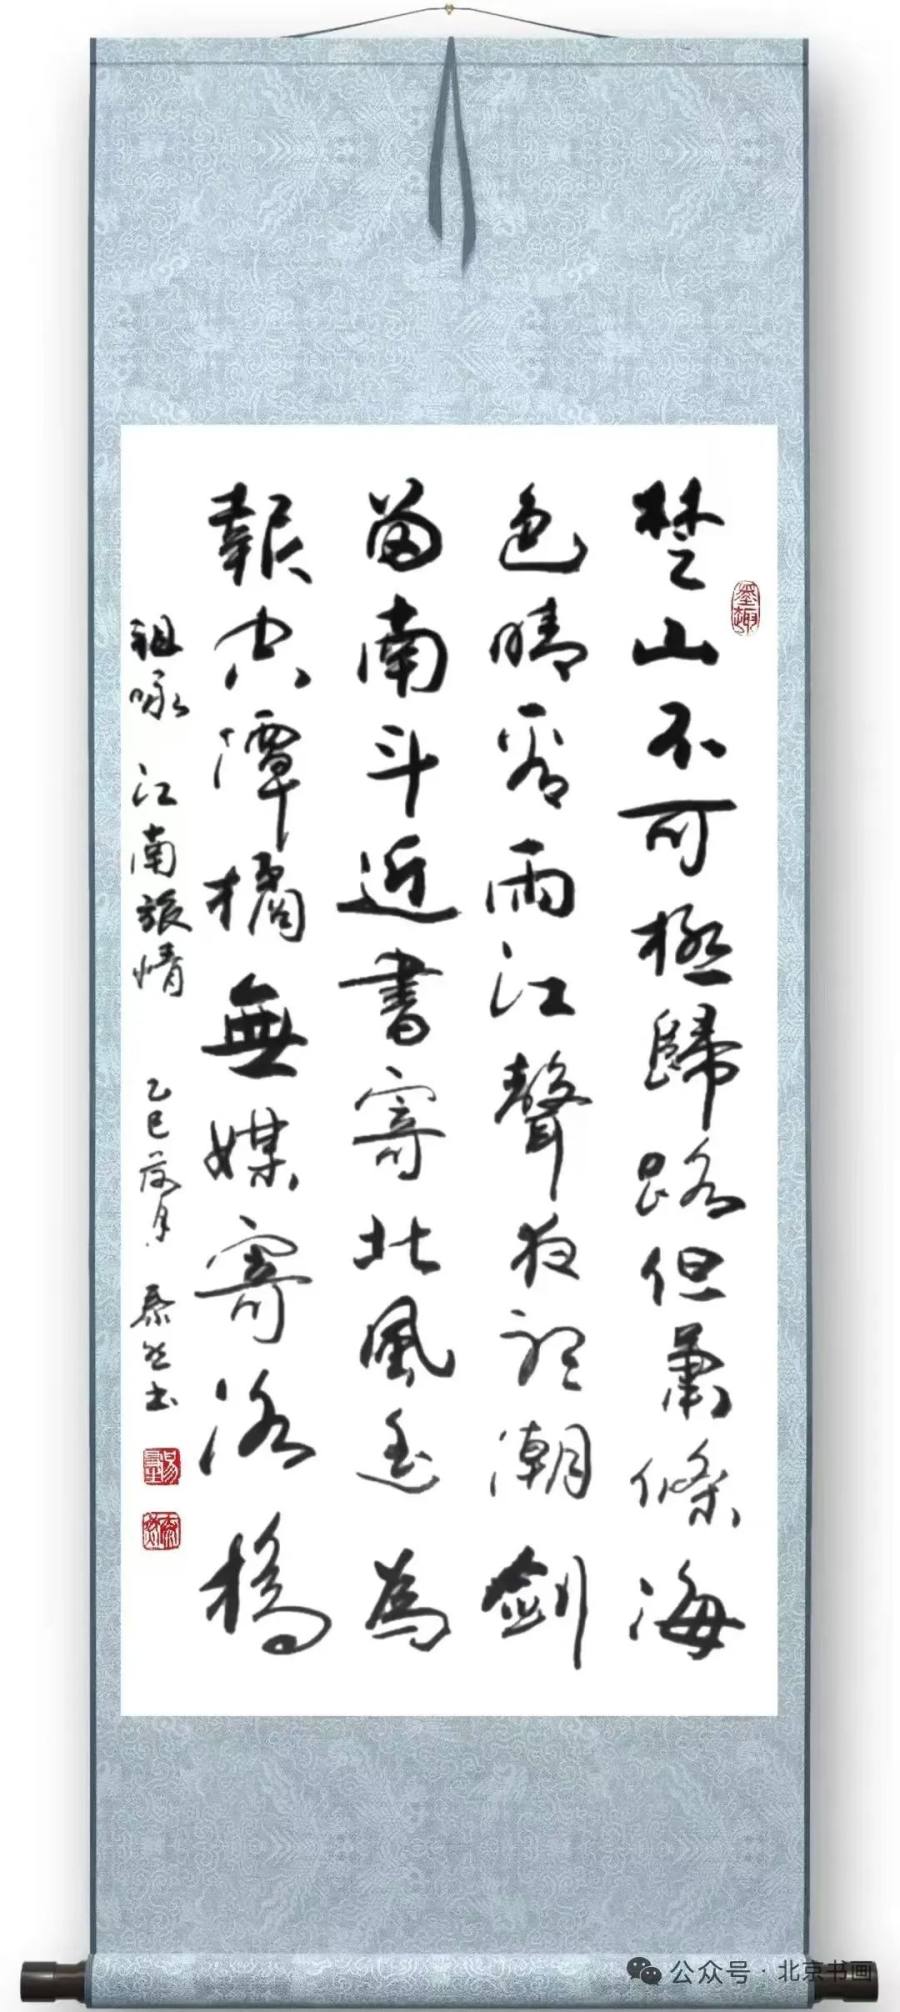 楚山不可極歸路但蕭條海
色晴看雨江聲夜聽潮劍
留南斗近書寄北風遙為
報空潭橘無媒寄洛橋
祖咏 江南旅情 乙巳 月 书
墨趣
公众号·北京书画